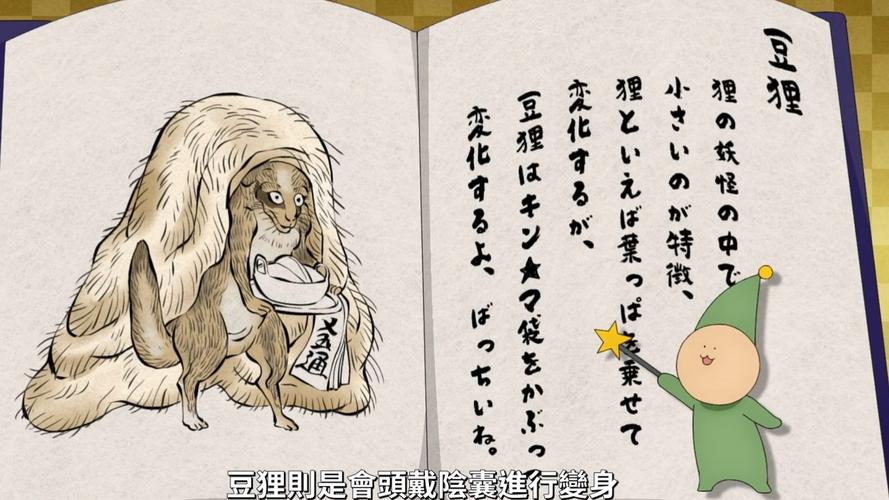 豆狸
狸の妖怪の中で
小さいのが特徴、
狸といえば葉っぱを乗せて
変化するが、
豆狸はキン★マ袋をかぶって
変化するよ、ばっちいね。
豆狸則是會頭戴陰囊進行變身